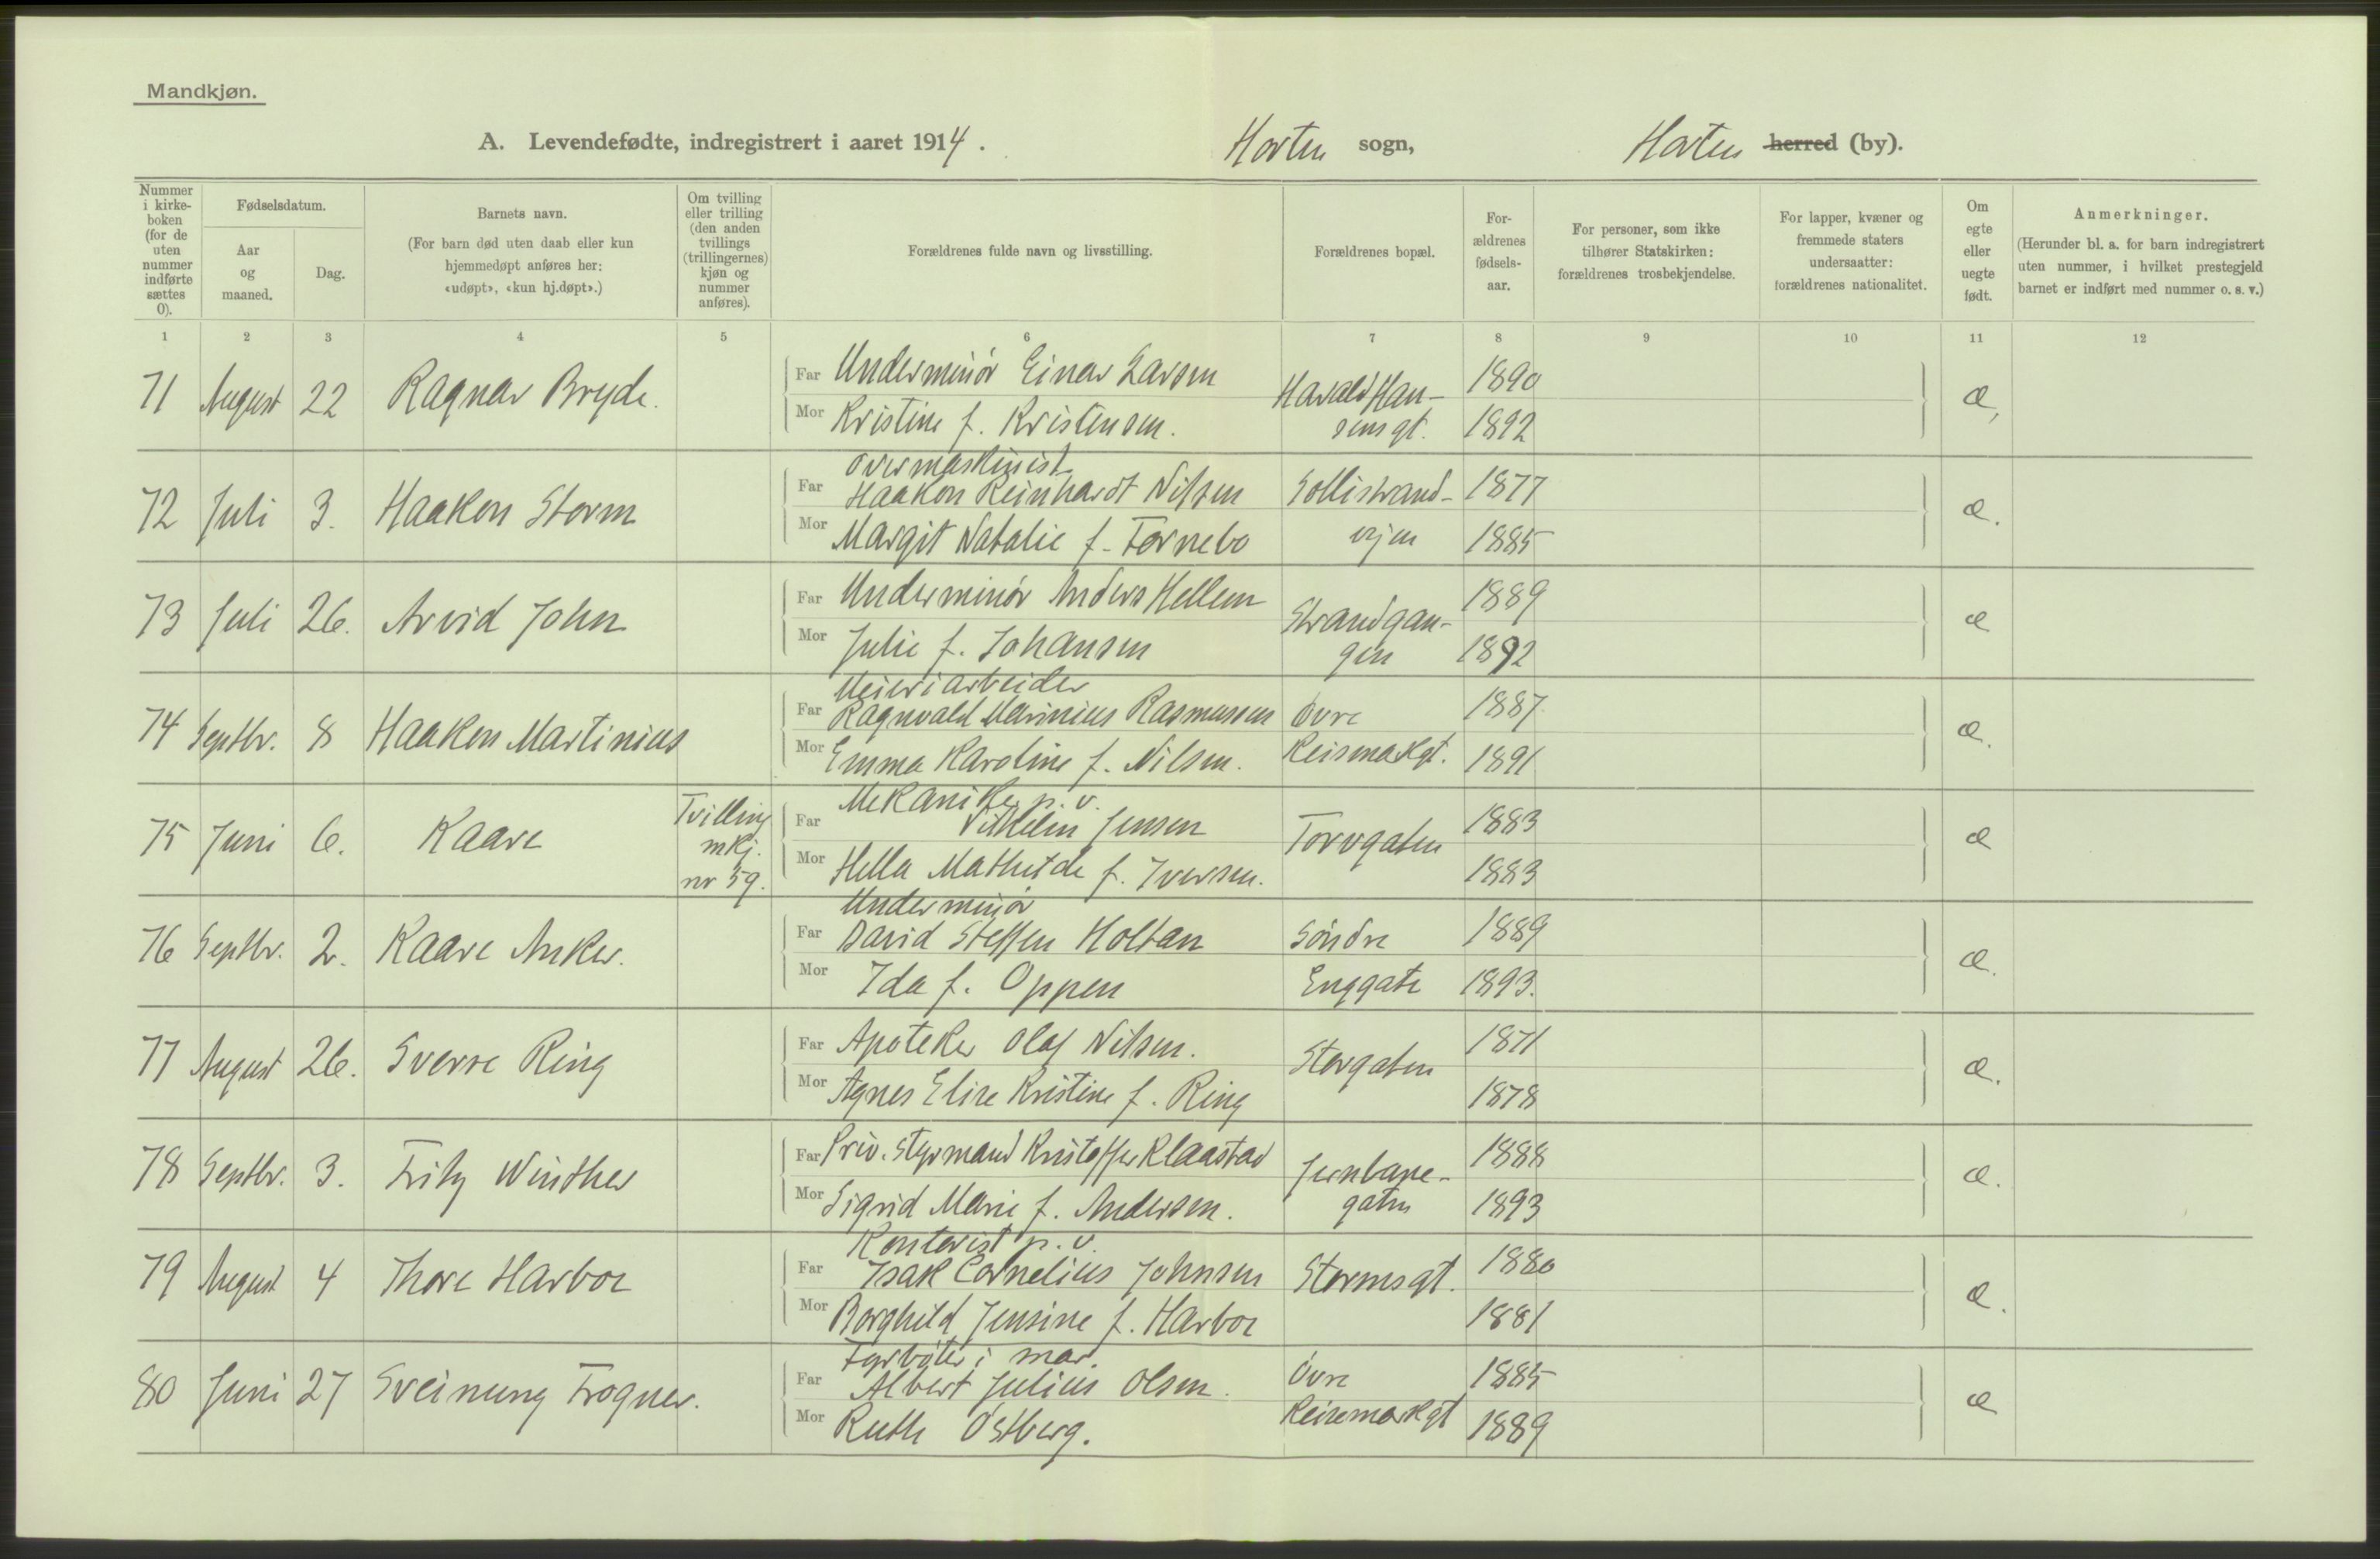 Mandkjøn.
A. Levendefødte, indregistrert i aaret 1914. Horten sogn, Horten herred (by).
Nummer i kirke-boken (for de uten nummer indførte sættes 0).
Fødselsdatum.
Aar og maaned.
Dag.
Barnets navn.
(For barn død uten daab eller kun hjemmedøpt anføres her: «udøpt», «kun hj.døpt».)
Om tvilling eller trilling (den anden tvillings (trillingernes) kjøn og nummer anføres).
Forældrenes fulde navn og livsstilling.
Forældrenes bopæl.
For-ældrenes fødsels-aar.
For personer, som ikke tilhører Statskirken: forældrenes trosbekjendelse.
For lapper, kvæner og fremmede staters undersaatter: forældrenes nationalitet.
Om egte eller uegte født.
Anmerkninger.
(Herunder bl. a. for barn indregistrert uten nummer, i hvilket prestegjeld barnet er indført med nummer o. s. v.)
1 2 3 4 5 6 7 8 9 10 11 12
71 August 22 Ragnar Bryde.
Far Underminör Einar Larsen
Mor Kristine f. Kristensen.
Harald Han-
sens gt.
1890
1892
æ,
72 Juli 3. Haakon Storm
Overmaskinist
Far Haakon Reinhardt Nilsen
Mor Margit Natalie f. Fornebo
Sollistrand-
vejen
1877
1885
æ.
73 Juli 26. Arvid John
Far Underminör Anders Hellem
Mor Julie f. Johansen
Strandgan-
gen
1889
1892
æ
74 Septbr. 8 Haakon Martinius
Meieriarbeider
Far Ragnvald Marinius Rasmussen
Mor Emma Karoline f. Nilsen.
Övre
Keisemarkgt.
1887.
1891
æ.
75 Juni 6. Kaare
Tvilling
mkj.
nr 59.
Mekaniker p. v.
Far Vilhelm Jensen
Mor Hella Mathilde f. Iversen.
Torvgaten
1883
1883
æ
76 Septbr. 2. Kaare Anker.
Underminör
Far David Steffen Holtan
Mor Ida f. Oppen
Söndre
Enggate
1889
1893.
æ.
77 August 26. Sverre Ring
Far Apoteker Olaf Nilsen.
Mor Agnes Elise Kristine f. Ring
Storgaten
1871
1878
æ.
78 Septbr. 3. Fritz Winther
Far Priv. Styrmand Kristoffer Klaastad
Mor Sigrid Marie f. Andersen.
Jernbane-
gaten
1888
1893
æ.
79 August 4 Thore Harboe
Kontorist p. v.
Far Isak Cornelius Johnsen
Mor Borghild Jensine f. Harboe
Stormsgt.
1880
1881
æ.
80 Juni 27 Sveinung Frogner.
Fyrböter i mar.
Far Albert Julius Olsen.
Mor Ruth Östberg.
Övre
Keisemarkgt
1885
1889
æ